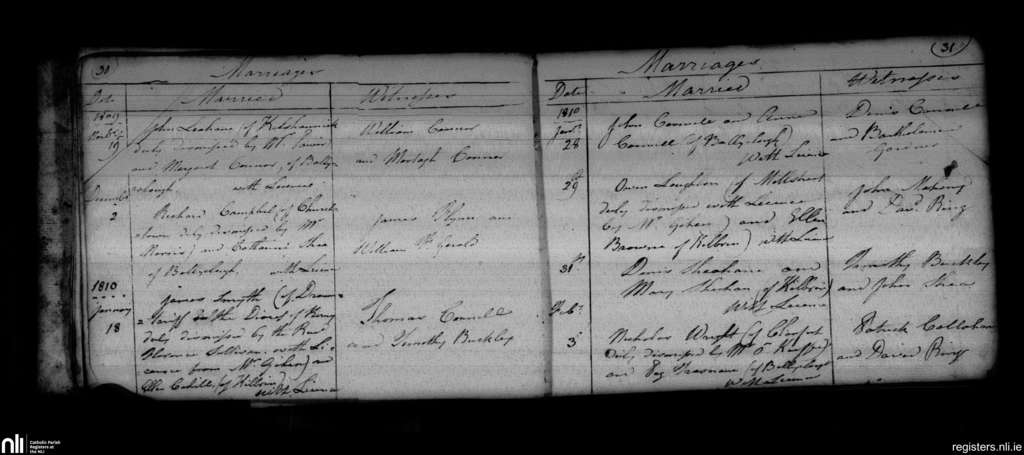 30
Marriages
Date
Married
Witnesses
1809
Novbr
19
John Leahane (of Kilshannick
duly dismissed by Mr.
and Margaret Connor, of Bally
with Licence
William Connor
and Mortagh Connor
Decembr
2
Richard Campbell (of Church
town duly dismissed by Mr
) and Catharine Shea
of Ballyclogh with Licence
James Flynn and
William Fitz Gerald
1810
January
18
James Smyth (of Drum
= tariff in the Diocs of Kerry
duly dismissed by the Revd
Florence Sullivan with Li
cence from Mr ) and
Ellen Cahill (of Kilbrin) with Licence
Thomas Connell
and Timothy Buckley
31
Marriages
Date
Married
Witnesses
1810
Janr.
28
John Connell and Anne
Connell (of Ballyclogh)
With Licence
Denis Connell
and Bartholomew
29
Owen (of Millstreet
duly dismissed with Licence
by Mr ) and Ellen
Browne of Kilbrin) with Licence
John Mahony
and David Ring
31st
Denis Sheehane and
Mary Sheehan (of Kilbrin)
With Licence
Timothy Buckley
and John Shea
Febr.
3
Nicholas Wright (of
duly dismissed by Mr O'Keeffe)
and Peg (of Ballyclogh
With Licence
Patrick Callahan
and David Ring
nli
Catholic Parish
Registers at
the NLI
registers.nli.ie